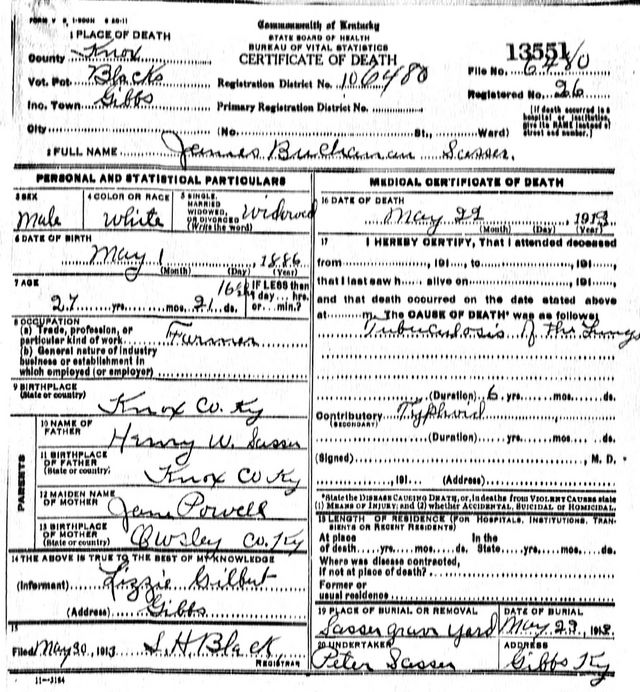 FORM V. S. 1-500M 6 20-11
Commonwealth of Kentucky
STATE BOARD OF HEALTH
BUREAU OF VITAL STATISTICS
CERTIFICATE OF DEATH
1 PLACE OF DEATH
County Knox
Vot. Pct Blacks
Inc. Town Gibbs
City
Registration District No. 106480
Primary Registration District No.
(No. St., Ward)
13551
File No. 6480
Registered No. 26
[If death occurred in a hospital or institution, give its NAME instead of street and number.]
2 FULL NAME James Buchanan Sasser.
PERSONAL AND STATISTICAL PARTICULARS
3 SEX
Male
4 COLOR OR RACE
White
5 SINGLE, MARRIED, WIDOWED, OR DIVORCED (Write the word)
Widowed
6 DATE OF BIRTH
May 1, 1886
(Month) (Day) (Year)
7 AGE
27 yrs. mos. 21 ds.
IF LESS than 1 day... hrs. or... min.?
8 OCCUPATION
(a) Trade, profession, or particular kind of work Farmer
(b) General nature of industry
business or establishment in
which employed (or employer)
9 BIRTHPLACE
(State or country)
Knox Co. Ky
PARENTS
10 NAME OF FATHER
Henry W. Sasser
11 BIRTHPLACE OF FATHER
(State or country)
Knox Co Ky
12 MAIDEN NAME OF MOTHER
Jane Powell
13 BIRTHPLACE OF MOTHER
(State or country)
Owsley Co. Ky
14 THE ABOVE IS TRUE TO THE BEST OF MY KNOWLEDGE
(Informant) Lizzie Gilbert
(Address) Gibbs
15
Filed May 30, 1913 S. H. Black
REGISTRAR
11-3184
MEDICAL CERTIFICATE OF DEATH
16 DATE OF DEATH
May 22, 1913
(Month) (Day) (Year)
17 I HEREBY CERTIFY, That I attended deceased
from , 191 , to , 191 ,
that I last saw h alive on , 191 ,
and that death occurred on the date stated above
at m. The CAUSE OF DEATH* was as follows:
Tubuculosis of the Lungs
(Duration) 6 yrs. mos. ds.
Contributory Typhoid
(SECONDARY)
(Duration) yrs. mos. ds.
(Signed) , M. D.
, 191 (Address)
*State the DISEASE CAUSING DEATH, or, in deaths from VIOLENT CAUSES state
(1) MEANS OF INJURY; and (2) whether ACCIDENTAL, SUICIDAL or HOMICIDAL.
18 LENGTH OF RESIDENCE (FOR HOSPITALS, INSTITUTIONS, TRANSIENTS OR RECENT RESIDENTS)
At place of death yrs. mos. ds. In the State yrs. mos. ds.
Where was disease contracted,
if not at place of death?
Former or
usual residence
19 PLACE OF BURIAL OR REMOVAL
Sasser grave yard
DATE OF BURIAL
May 23, 1913
20 UNDERTAKER
Peter Sasser
ADDRESS
Gibbs Ky